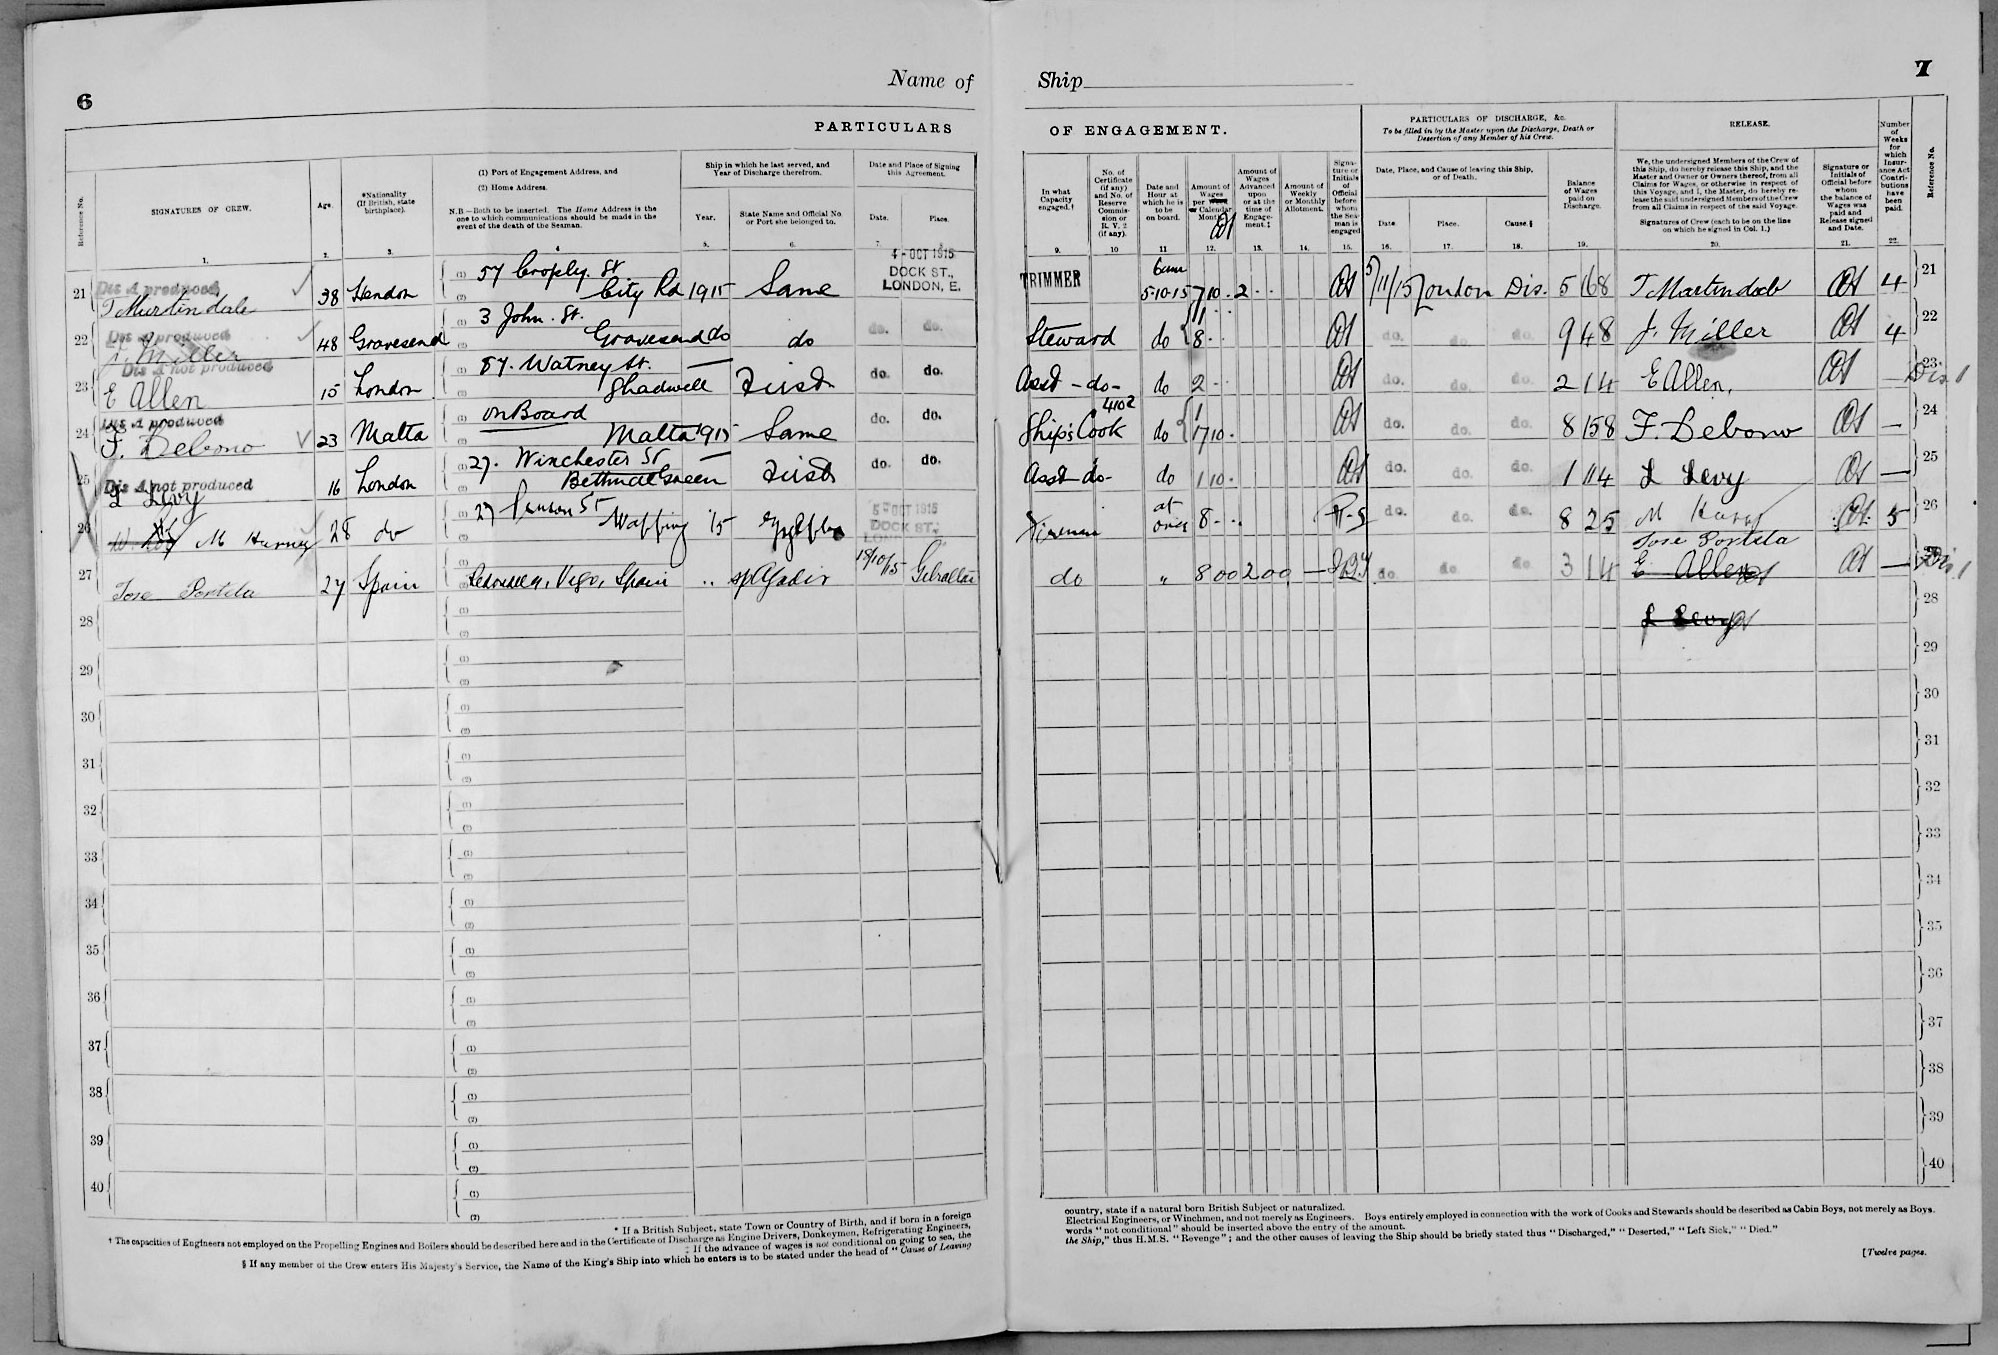 6
Name of
Ship
7
PARTICULARS
OF ENGAGEMENT.
PARTICULARS OF DISCHARGE, &c.
To be filled in by the Master upon the Discharge, Death or
Desertion of any Member of his Crew.
RELEASE.
Number of Weeks for which Insurance Act Contributions have been paid.
Reference No.
Reference No.
SIGNATURES OF CREW.
Age.
*Nationality
(If British, state
birthplace).
(1) Port of Engagement Address, and
(2) Home Address.
N.B.—Both to be inserted. The Home Address is the
one to which communications should be made in the
event of the death of the Seaman.
Ship in which he last served, and
Year of Discharge therefrom.
Year.
State Name and Official No.
or Port she belonged to.
Date and Place of Signing
this Agreement.
Date.
Place.
In what
Capacity
engaged.†
No. of
Certificate
(if any)
and No. of
Reserve
Commis-
sion or
R. V. 2
(if any).
Date and
Hour at
which he is
to be
on board.
Amount of
Wages
per
or Calendar
Month.
Amount of
Wages
Advanced
upon
or at the
time of
Engage-
ment.‡
Amount of
Weekly
or Monthly
Allotment.
Signa-
ture or
Initials
of
Official
before
whom
the Sea-
man is
engaged
Date, Place, and Cause of leaving this Ship,
or of Death.
Date.
Place.
Cause.§
Balance
of Wages
paid on
Discharge.
We, the undersigned Members of the Crew of
this Ship, do hereby release this Ship, and the
Master and Owner or Owners thereof, from all
Claims for Wages, or otherwise in respect of
this Voyage, and I, the Master, do hereby re-
lease the said undersigned Members of the Crew
from all Claims in respect of the said Voyage.
Signatures of Crew (each to be on the line
on which he signed in Col. 1.)
Signature or
Initials of
Official before
whom
the balance of
Wages was
paid and
Release signed
and Date.
1. 2. 3. 4 5. 6. 7. 9. 10 11 12. 13. 14. 15. 16. 17. 18. 19. 20. 21. 22.
4 - OCT 1915
DOCK ST.,
LONDON, E.
21 Dis A produced
T Martindale 38 Hendon (1) 57 Cropley. St (2) City Rd 1915 Same
TRIMMER 6am 5-10-15 7 10 . 2 . . 5/11/15 London Dis. 5 16 8 T Martindale 4 21
22 Dis A produced
J. Miller 48 Gravesend (1) 3 John. St. (2) Gravesend do do do. do.
Steward do 1 8 . . do. do. do. 9 4 8 J. Miller 4 22
23 Dis A not produced
E Allen 15 London (1) 87. Watney St. (2) Shadwell — First do. do.
Asst - do - do 2 . . do. do. do. 2 1 4 E Allen. — Dis. 1 23
24 Dis A produced
F. Debono 23 Malta (1) on Board (2) Malta 1915 Same do. do.
Ship's Cook 4102 do 1 7 10 . do. do. do. 8 15 8 F. Debono — 24
25 Dis A not produced
L Levy 16 London (1) 27. Winchester St (2) Bethnal Green — First do. do.
Asst do - do 1 10 . do. do. do. 1 11 4 L Levy — 25
26 M Harvey 28 do (1) 27 St (2) Wapping 15 5 - OCT 1915 DOCK ST.,
Fireman at once 8 - . . do. do. do. 8 2 5 M 5 26
27 Jose Portela 27 Spain Redondela, Vigo, Spain .. 18/10/15 Gibraltar
do " 8 00 2 00 — do. do. do. 3 1 4 Jose Portela
E Allen — Dis. 1
28
L Levy
28
29
29
30
30
31
31
32
32
33
33
34
34
35
35
36
36
37
37
38
38
39
39
40
40
* If a British Subject, state Town or Country of Birth, and if born in a foreign
country, state if a natural born British Subject or naturalized.
† The capacities of Engineers not employed on the Propelling Engines and Boilers should be described here and in the Certificate of Discharge as Engine Drivers, Donkeymen, Refrigerating Engineers,
Electrical Engineers, or Winchmen, and not merely as Engineers. Boys entirely employed in connection with the work of Cooks and Stewards should be described as Cabin Boys, not merely as Boys.
‡ If the advance of wages is not conditional on going to sea, the
words "not conditional" should be inserted above the entry of the amount.
§ If any member of the Crew enters His Majesty's Service, the Name of the King's Ship into which he enters is to be stated under the head of "Cause of Leaving
the Ship," thus H.M.S. "Revenge"; and the other causes of leaving the Ship should be briefly stated thus "Discharged," "Deserted," "Left Sick," "Died."
[Twelve pages.